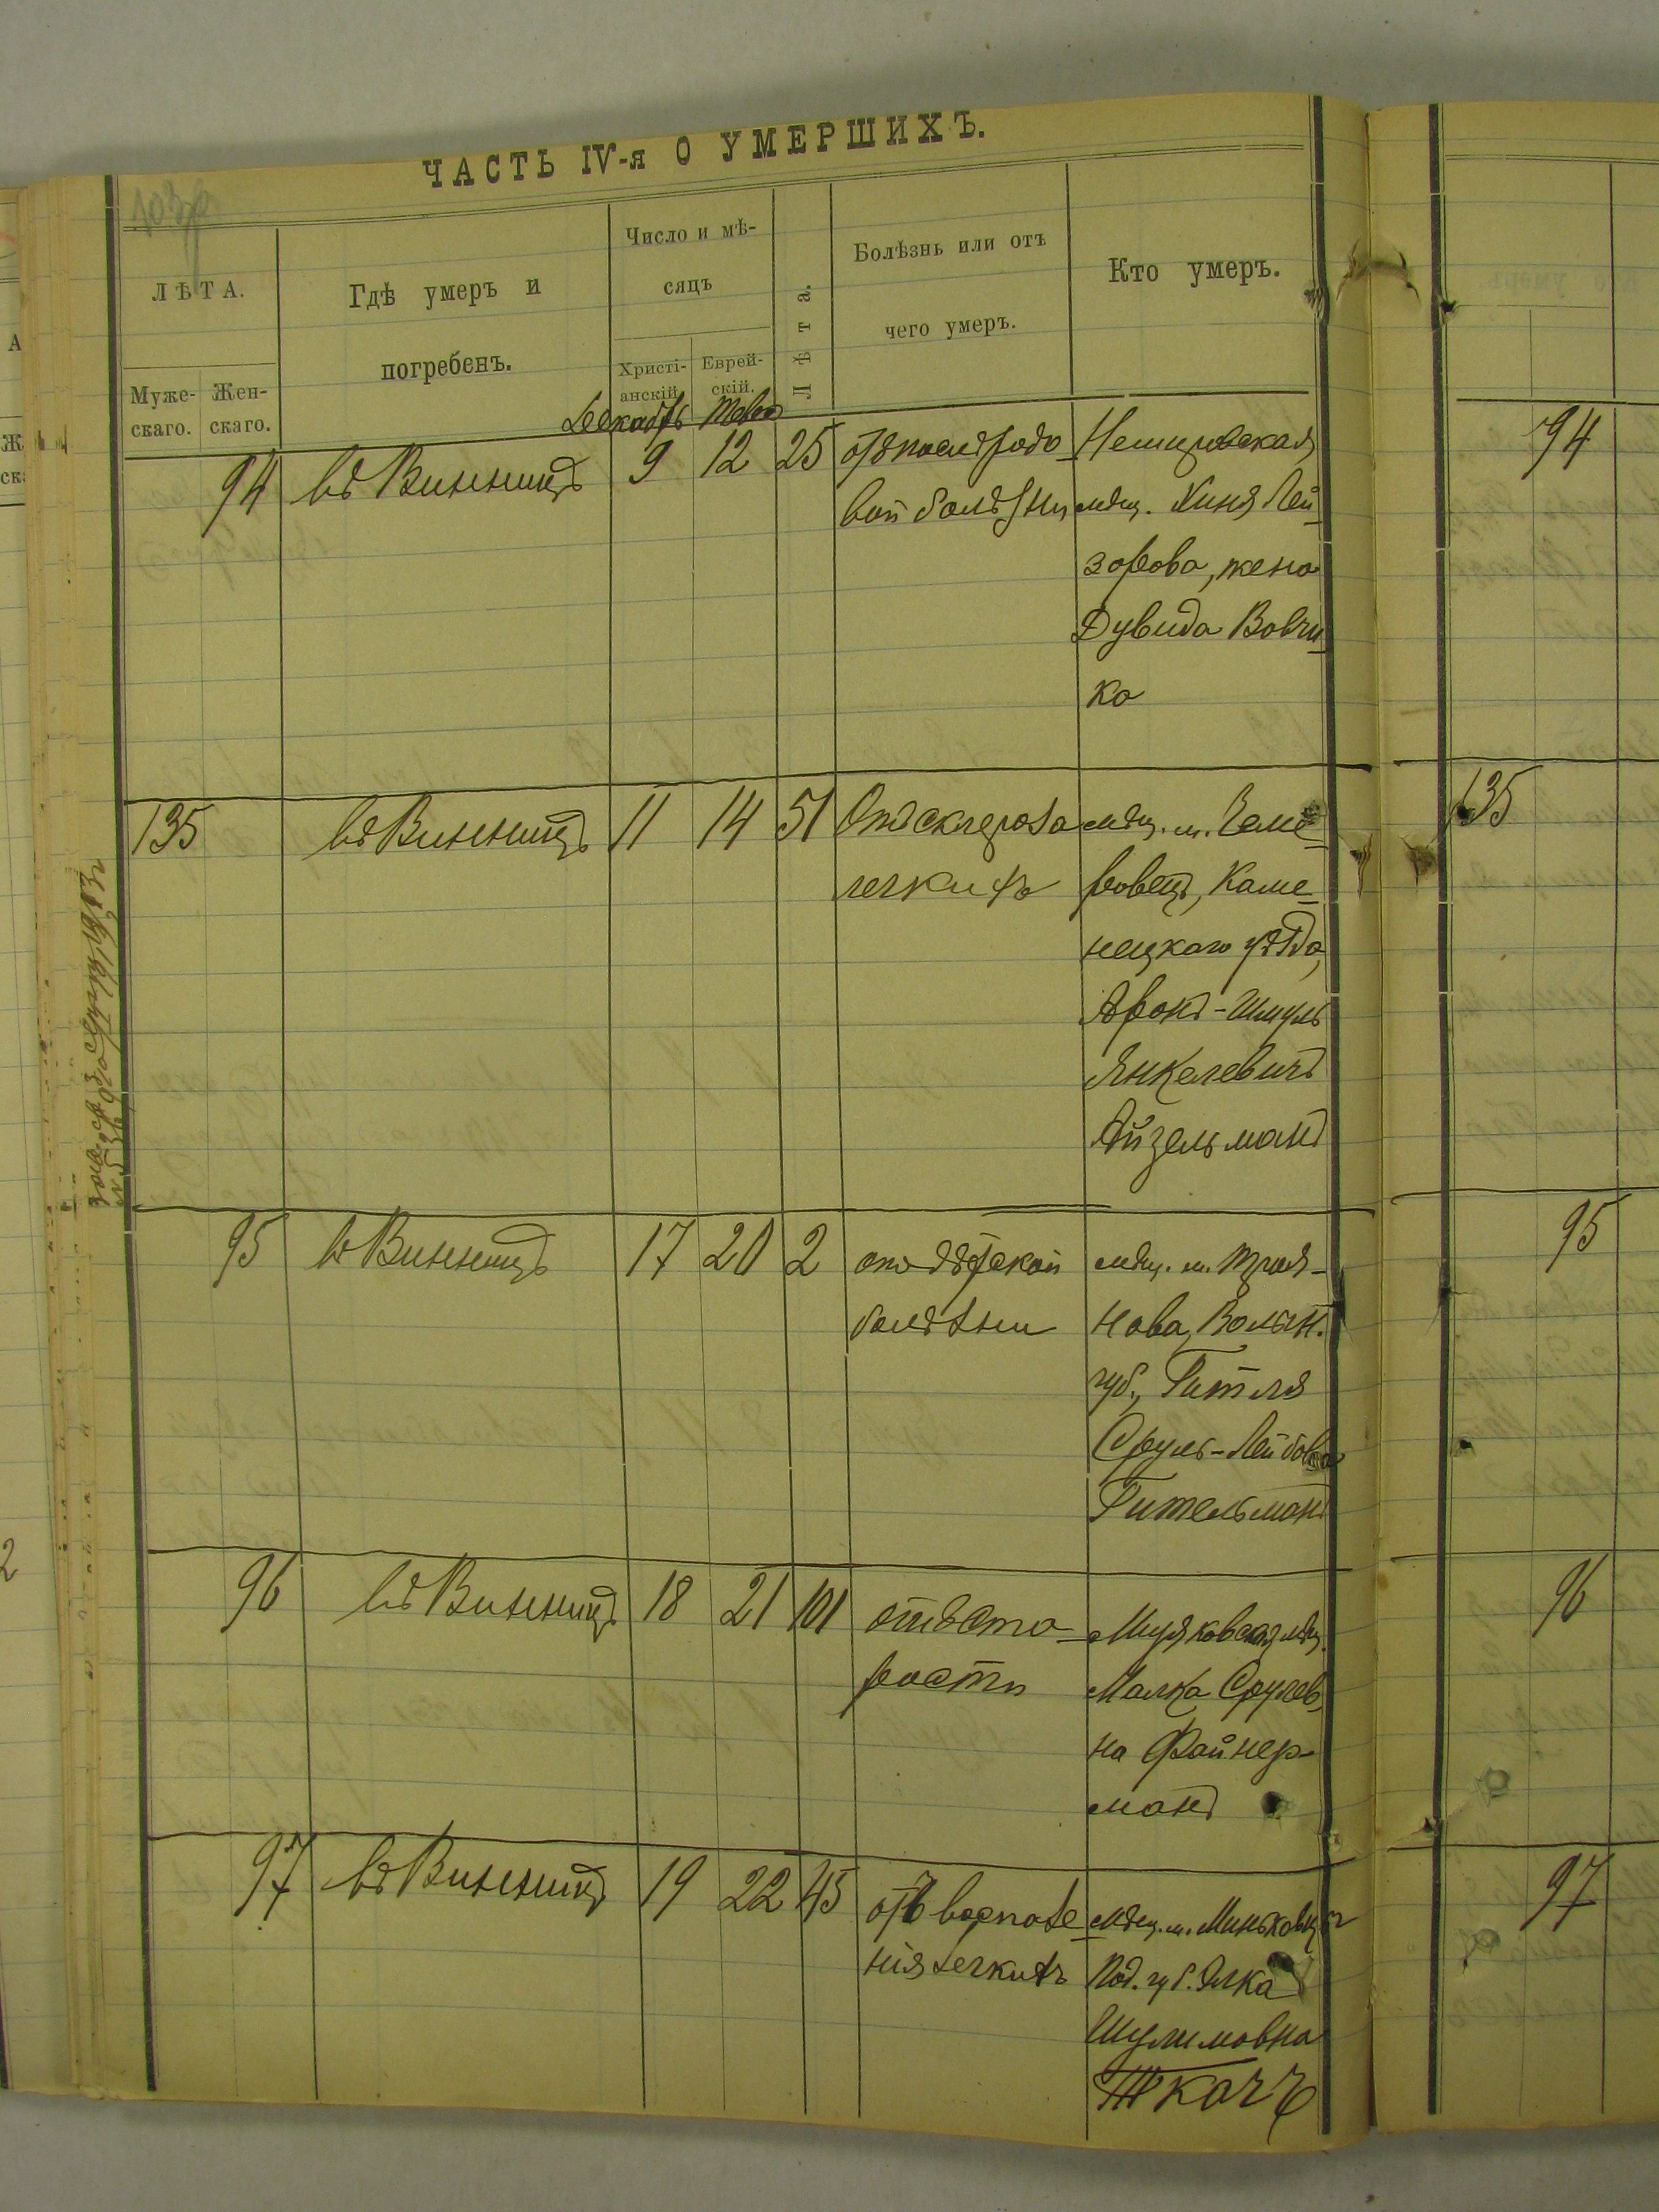 ЧАСТЬ IV-я О УМЕРШИХЪ.
ЛѢТА.
Муже-
скаго.
Жен-
скаго.
Гдѣ умеръ и
погребенъ.
Число и мѣ-
сяцъ
Христі-
анскій
Еврей-
скій.
Лѣта.
Болѣзнь или отъ
чего умеръ.
Кто умеръ.
Декабрь Тевес
94 въ Винницѣ 9 12 25
отъ послѣродо-
вой болѣзни
Немировская
мѣщ. Хиня Лей-
зорова, жена
Дувида Вовчи-
ка
94
135 въ Винницѣ 11 14 51
Отъ склероза
легкихъ
мѣщ. м. Чеме-
ровецъ, Каме-
нецкаго уѣзда,
Аронъ-Шмуль
Янкелевичъ
Айзельманъ
135
95 въ Винницѣ 17 20 2
отъ дѣтской
болѣзни
мѣщ. м. Троя-
нова, Волын.
губ., Гитля
Сруль-Лейбова
Гительманъ
95
96 въ Винницѣ 18 21 101
отъ ста-
рости
мѣщ.
Малка Срулев-
на Файнер-
манъ
96
97 въ Винницѣ 19 22 45
отъ воспале-
нія легкихъ
мѣщ. м. Миньковцы
Под. губ. Элка
Шулимовна
Ткачъ
97